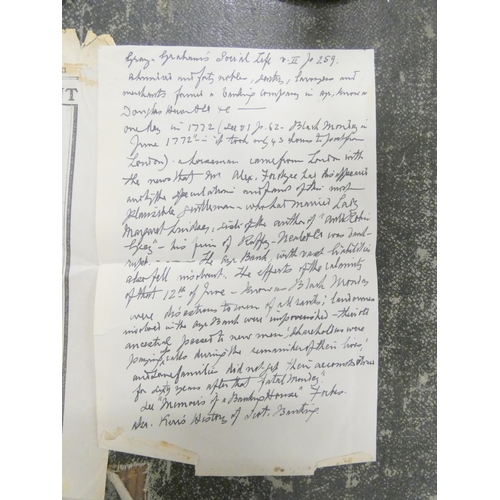 Gray - Graham's Social Life v. II p 259.
admirers and forty nobles, gentry, lawyers and
merchants formed a banking company in Ayr, known as
Douglas Heron & Co
one day in 1772 (see v I p. 62 - Black Monday in
June 1772 - it took only 43 hours to post from
London) - a horseman came from London with
the news that Mr Alex. Fordyce had disappeared
and the speculations and of the most
plausible gentleman - who had married Lady
Margaret Lindsay, sister of the author of "Auld Robin
Gray" - his firm of was bank-
rupt. - - - The Ayr Bank, with vast liabilities
also fell insolvent. The effects of the calamity
of that 12th of June - known as Black Monday
were disastrous to men of all ranks; landowners
involved in the Ayr Bank were impoverished - their old
ancestral passed to new men; shareholders were
paying calls during the remainder of their lives;
and some families did not get their accounts
for sixty years after that "fatal Monday."
See "Memoirs of a Banking House" Forbes.
also. Kerr's History of Scot. Banking
T